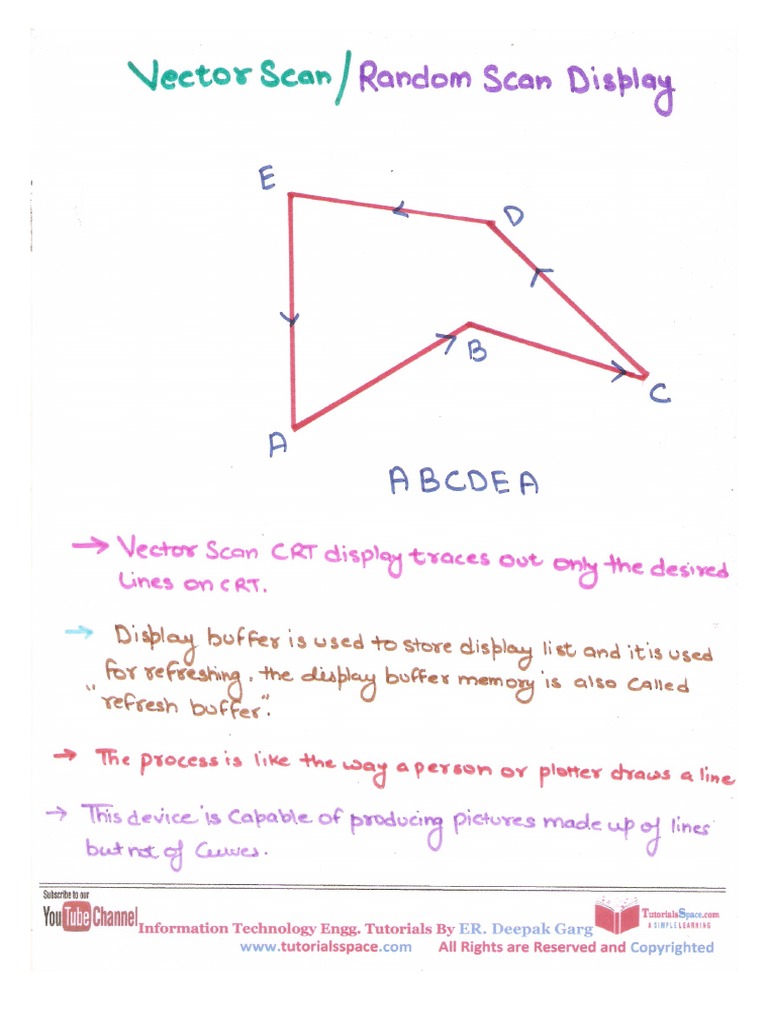 Vector Scan/Random Scan Display
E
D
B
C
A
A B C D E A
→ Vector Scan CRT display traces out only the desired
Lines on CRT.
→ Display buffer is used to store display list and it is used
for refreshing. the display buffer memory is also called
"refresh buffer".
→ The process is like the way a person or plotter draws a line
→ This device is capable of producing pictures made up of lines
but not of Curves.
Subscribe to our
YouTube Channel
Information Technology Engg. Tutorials By ER. Deepak Garg
www.tutorialsspace.com All Rights are Reserved and Copyrighted
TutorialsSpace.com
A SIMPLE LEARNING